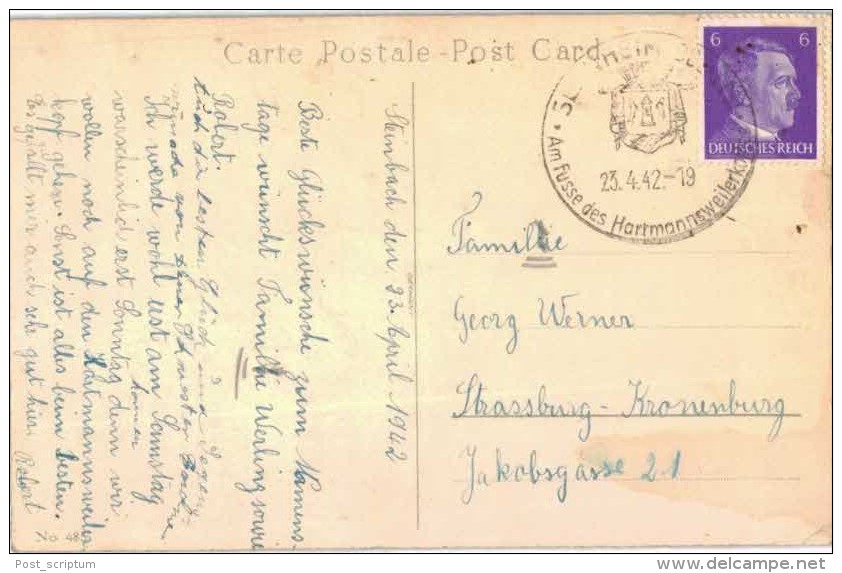 Carte Postale - Post Card
6 6
DEUTSCHES REICH
Am Fusse des Hartmannsweilerko
23.4.42.-19
Steinbach den 23. April 1942
Beste Glückswünsche zum Namens-
tage wünscht Familie Werling soure
Robert.
Euch die besten Glück und Segens
von
Ich werde wohl erst am Samstag
warscheinlich erst Sonntag kommen denn wir
wollen noch auf den Hartmannsweiler
kopf gehen. Sonst ist alles beim besten.
Es gefällt mir auch sehr gut hier Robert
Familie
Georg Werner
Strassburg-Kronenburg
Jakobsgasse 21
No 48
Post_scriptum
delcampe.net